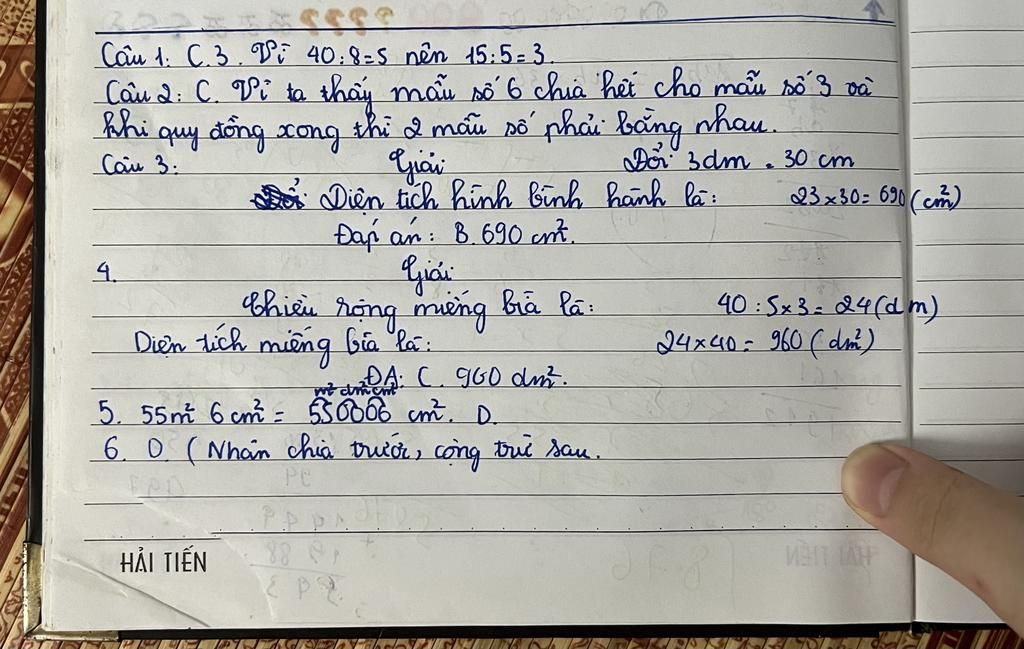 Câu 1: C.3. Vì 40:8=5 nên 15:5=3.
Câu 2: C. Vì ta thấy mẫu số 6 chia hết cho mẫu số 3 và
khi quy đồng xong thì 2 mẫu số phải bằng nhau.
Câu 3: Giải Đổi: 3dm = 30 cm
Diện tích hình bình hành là: 23×30=690 (cm²)
Đáp án: B. 690 cm².
4. Giải
Chiều rộng miếng bìa là: 40:5×3=24(dm)
Diện tích miếng bìa là: 24×40=960(dm²)
ĐA: C. 960 dm².
m² dm² cm²
5. 55m² 6cm² = 550006 cm². D.
6. D. (Nhân chia trước, cộng trừ sau.
HẢI TIẾN